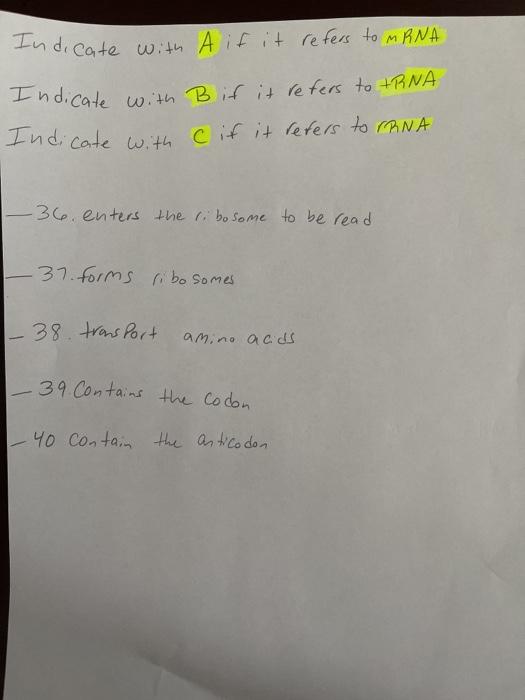 Indicate with A if it refers to mRNA
Indicate with B if it refers to tRNA
Indicate with C if it refers to rRNA
— 36. enters the ribosome to be read
— 37. forms ribosomes
— 38. transport amino acds
— 39. Contains the codon
— 40 Contain the anticodon